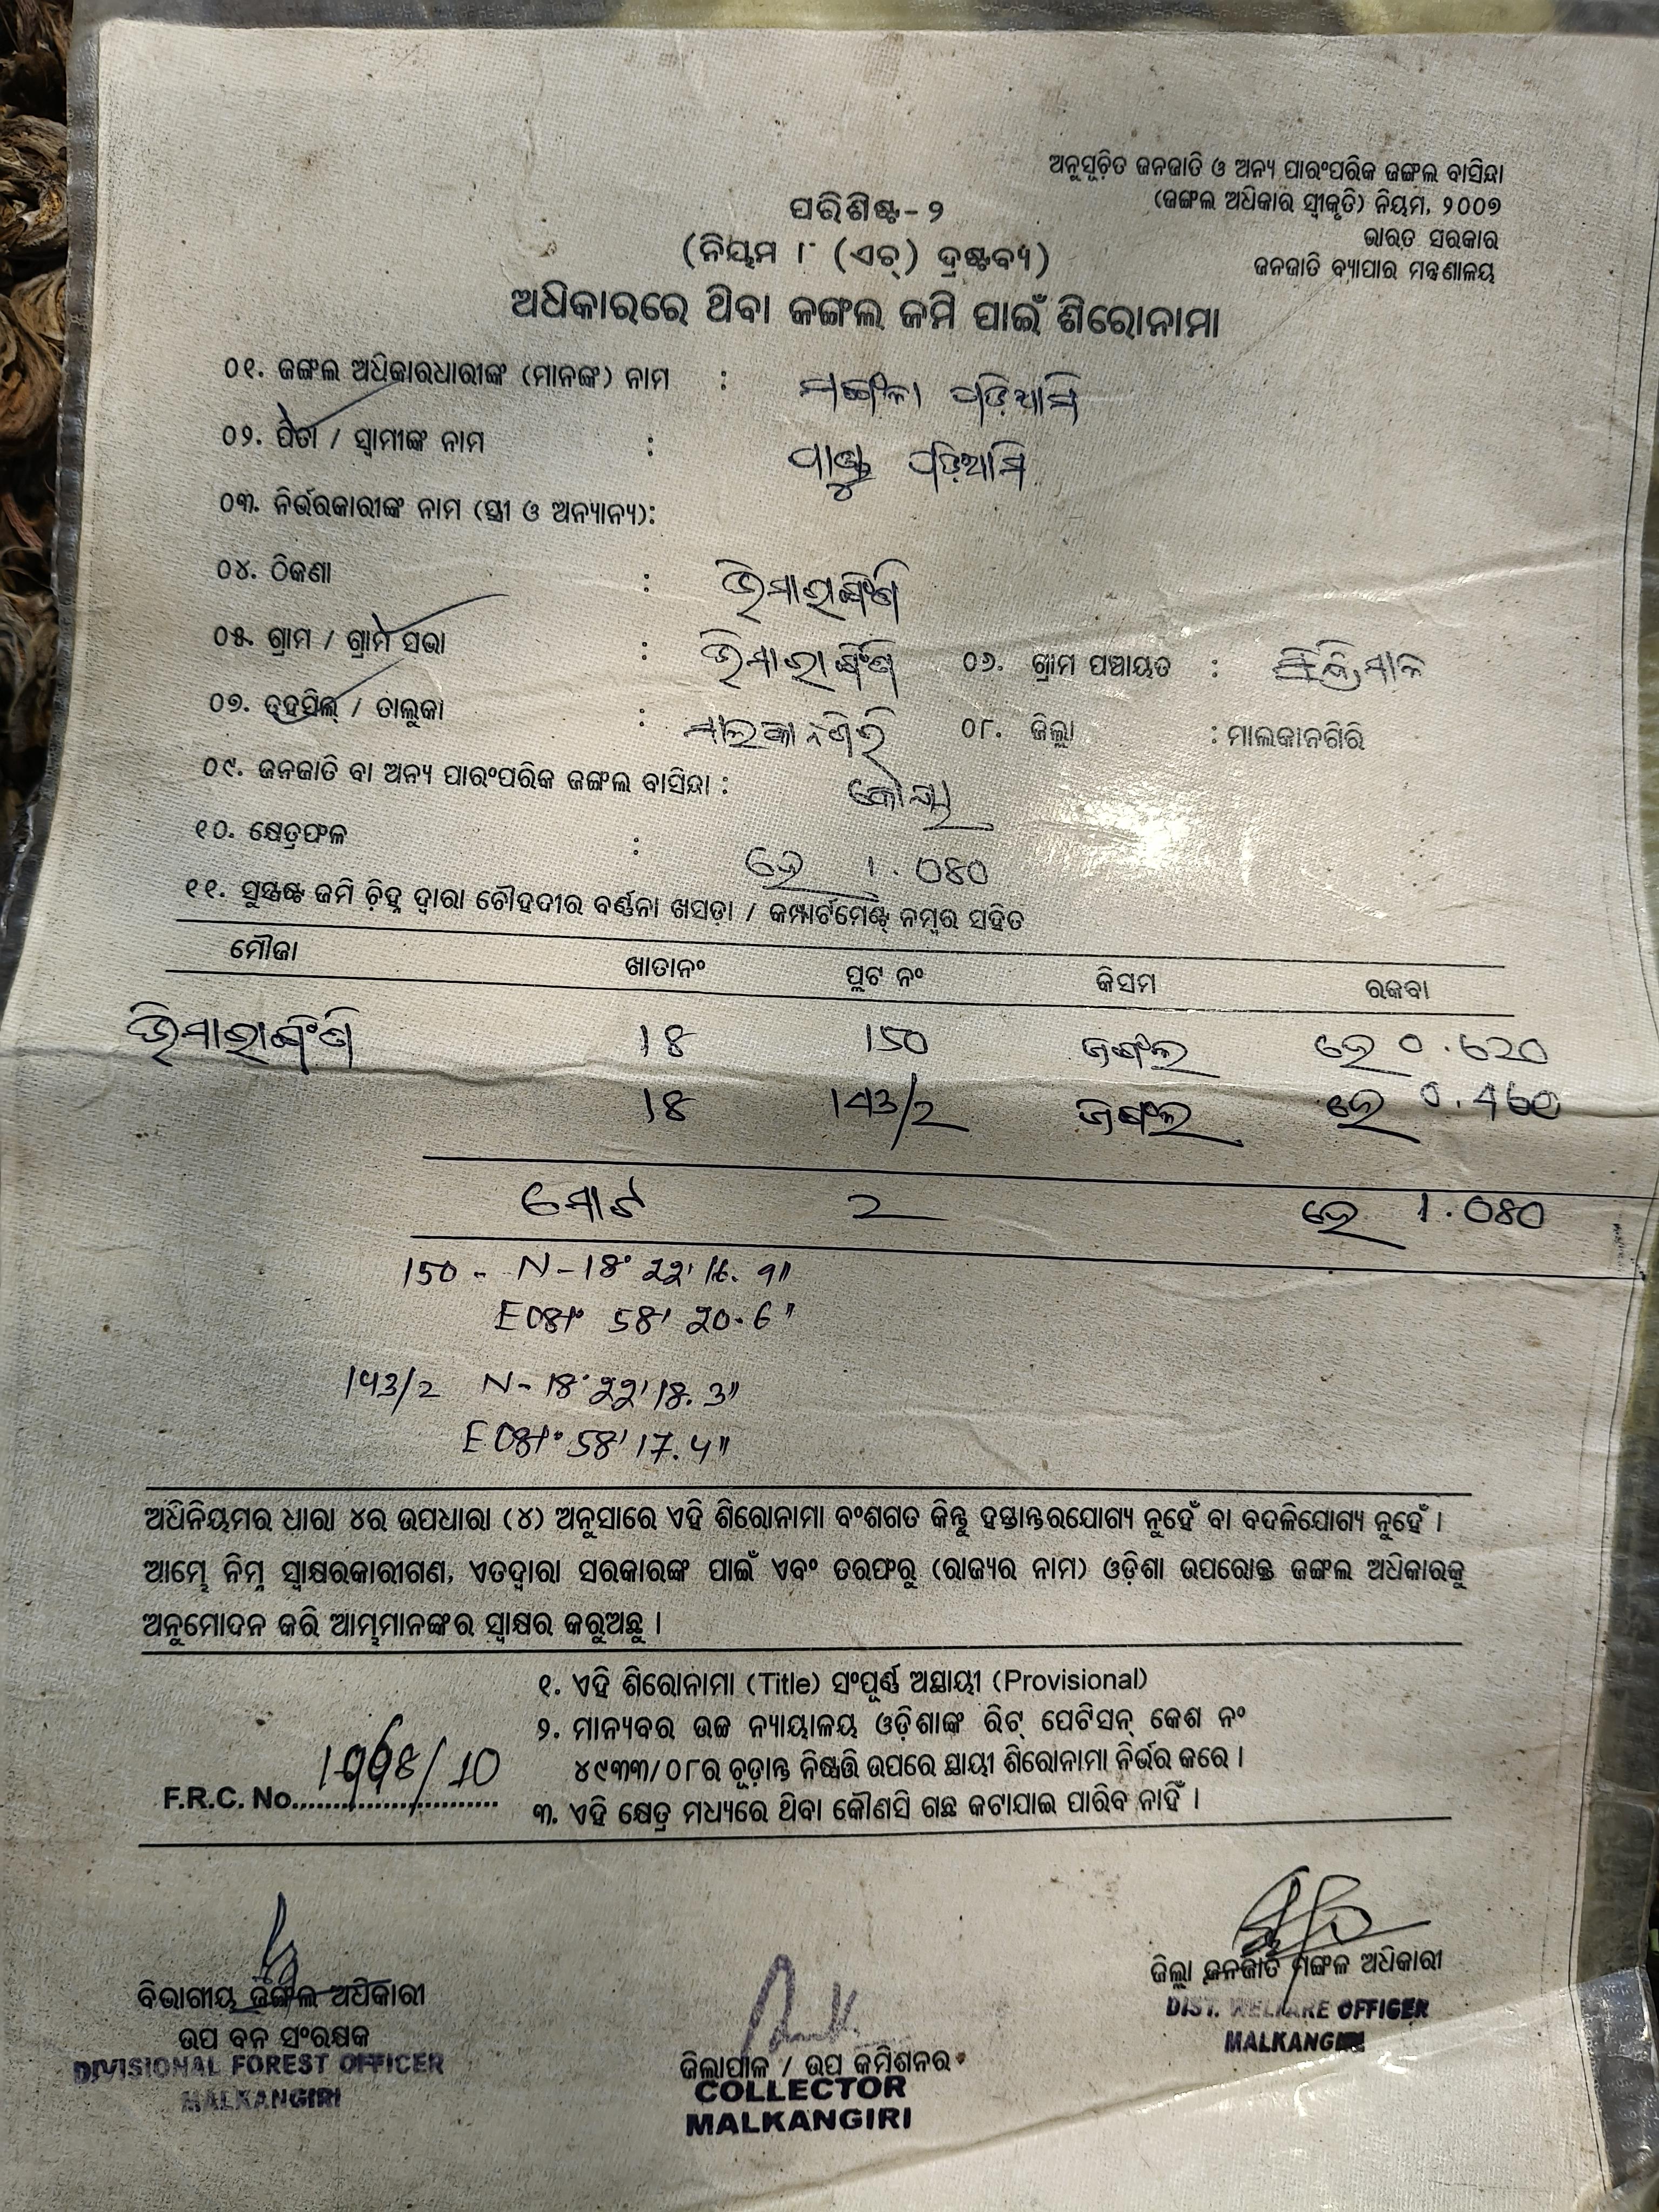 ଅନୁସୂଚିତ ଜନଜାତି ଓ ଅନ୍ୟ ପାରଂପରିକ ଜଙ୍ଗଲ ବାସିନ୍ଦା
(ଜଙ୍ଗଲ ଅଧିକାର ସ୍ୱୀକୃତି) ନିୟମ, ୨୦୦୭
ଭାରତ ସରକାର
ଜନଜାତି ବ୍ୟାପାର ମନ୍ତ୍ରଣାଳୟ
ପରିଶିଷ୍ଟ-୨
(ନିୟମ ୮ (ଏଚ୍) ଦ୍ରଷ୍ଟବ୍ୟ)
ଅଧିକାରରେ ଥିବା ଜଙ୍ଗଲ ଜମି ପାଇଁ ଶିରୋନାମା
୦୧. ଜଙ୍ଗଲ ଅଧିକାରଧାରୀଙ୍କ (ମାନଙ୍କ) ନାମ : ପଡ଼ିଆମି
୦୨. ପିତା / ସ୍ୱାମୀଙ୍କ ନାମ : ପଡ଼ିଆମି
୦୩. ନିର୍ଭରକାରୀଙ୍କ ନାମ (ସ୍ତ୍ରୀ ଓ ଅନ୍ୟାନ୍ୟ):
୦୪. ଠିକଣା :
୦୫. ଗ୍ରାମ / ଗ୍ରାମ ସଭା : ୦୬. ଗ୍ରାମ ପଞ୍ଚାୟତ :
୦୭. ତହସିଲ୍ / ତାଲୁକା : ମାଲକାନଗିରି ୦୮. ଜିଲ୍ଲା : ମାଲକାନଗିରି
୦୯. ଜନଜାତି ବା ଅନ୍ୟ ପାରଂପରିକ ଜଙ୍ଗଲ ବାସିନ୍ଦା : କୋୟା
୧୦. କ୍ଷେତ୍ରଫଳ : ହେ 1.080
୧୧. ସୁସ୍ପଷ୍ଟ ଜମି ଚିହ୍ନ ଦ୍ୱାରା ଚୌହଦୀର ବର୍ଣ୍ଣନା ଖସଡ଼ା / କମ୍ପାର୍ଟମେଣ୍ଟ ନମ୍ବର ସହିତ
ମୌଜା ଖାତାନଂ ପ୍ଲଟ ନଂ କିସମ ରକବା
18 150 ଜଙ୍ଗଲ ହେ 0.620
18 143/2 ଜଙ୍ଗଲ ହେ 0.460
ମୋଟ 2 ହେ 1.080
150 - N-18° 22' 16.9"
E081° 58' 20.6"
143/2 N-18° 22' 18.3"
E081° 58' 17.4"
ଅଧିନିୟମର ଧାରା ୪ର ଉପଧାରା (୪) ଅନୁସାରେ ଏହି ଶିରୋନାମା ବଂଶଗତ କିନ୍ତୁ ହସ୍ତାନ୍ତରଯୋଗ୍ୟ ନୁହେଁ ବା ବଦଳିଯୋଗ୍ୟ ନୁହେଁ ।
ଆମ୍ଭେ ନିମ୍ନ ସ୍ୱାକ୍ଷରକାରୀଗଣ, ଏତଦ୍ୱାରା ସରକାରଙ୍କ ପାଇଁ ଏବଂ ତରଫରୁ (ରାଜ୍ୟର ନାମ) ଓଡ଼ିଶା ଉପରୋକ୍ତ ଜଙ୍ଗଲ ଅଧିକାରକୁ
ଅନୁମୋଦନ କରି ଆମ୍ଭମାନଙ୍କର ସ୍ୱାକ୍ଷର କରୁଅଛୁ ।
୧. ଏହି ଶିରୋନାମା (Title) ସଂପୂର୍ଣ୍ଣ ଅସ୍ଥାୟୀ (Provisional)
୨. ମାନ୍ୟବର ଉଚ୍ଚ ନ୍ୟାୟାଳୟ ଓଡ଼ିଶାଙ୍କ ରିଟ୍ ପେଟିସନ୍ କେଶ ନଂ
୪୯୩୩/୦୮ର ଚୂଡ଼ାନ୍ତ ନିଷ୍ପତ୍ତି ଉପରେ ସ୍ଥାୟୀ ଶିରୋନାମା ନିର୍ଭର କରେ ।
F.R.C. No.
୩. ଏହି କ୍ଷେତ୍ର ମଧ୍ୟରେ ଥିବା କୌଣସି ଗଛ କଟାଯାଇ ପାରିବ ନାହିଁ ।
ବିଭାଗୀୟ ଜଙ୍ଗଲ ଅଧିକାରୀ
ଉପ ବନ ସଂରକ୍ଷକ
DIVISIONAL FOREST OFFICER
MALKANGIRI
ଜିଲ୍ଲାପାଳ / ଉପ କମିଶନର
COLLECTOR
MALKANGIRI
ଜିଲ୍ଲା ଜନଜାତି ମଙ୍ଗଳ ଅଧିକାରୀ
DIST. WELFARE OFFICER
MALKANGIRI